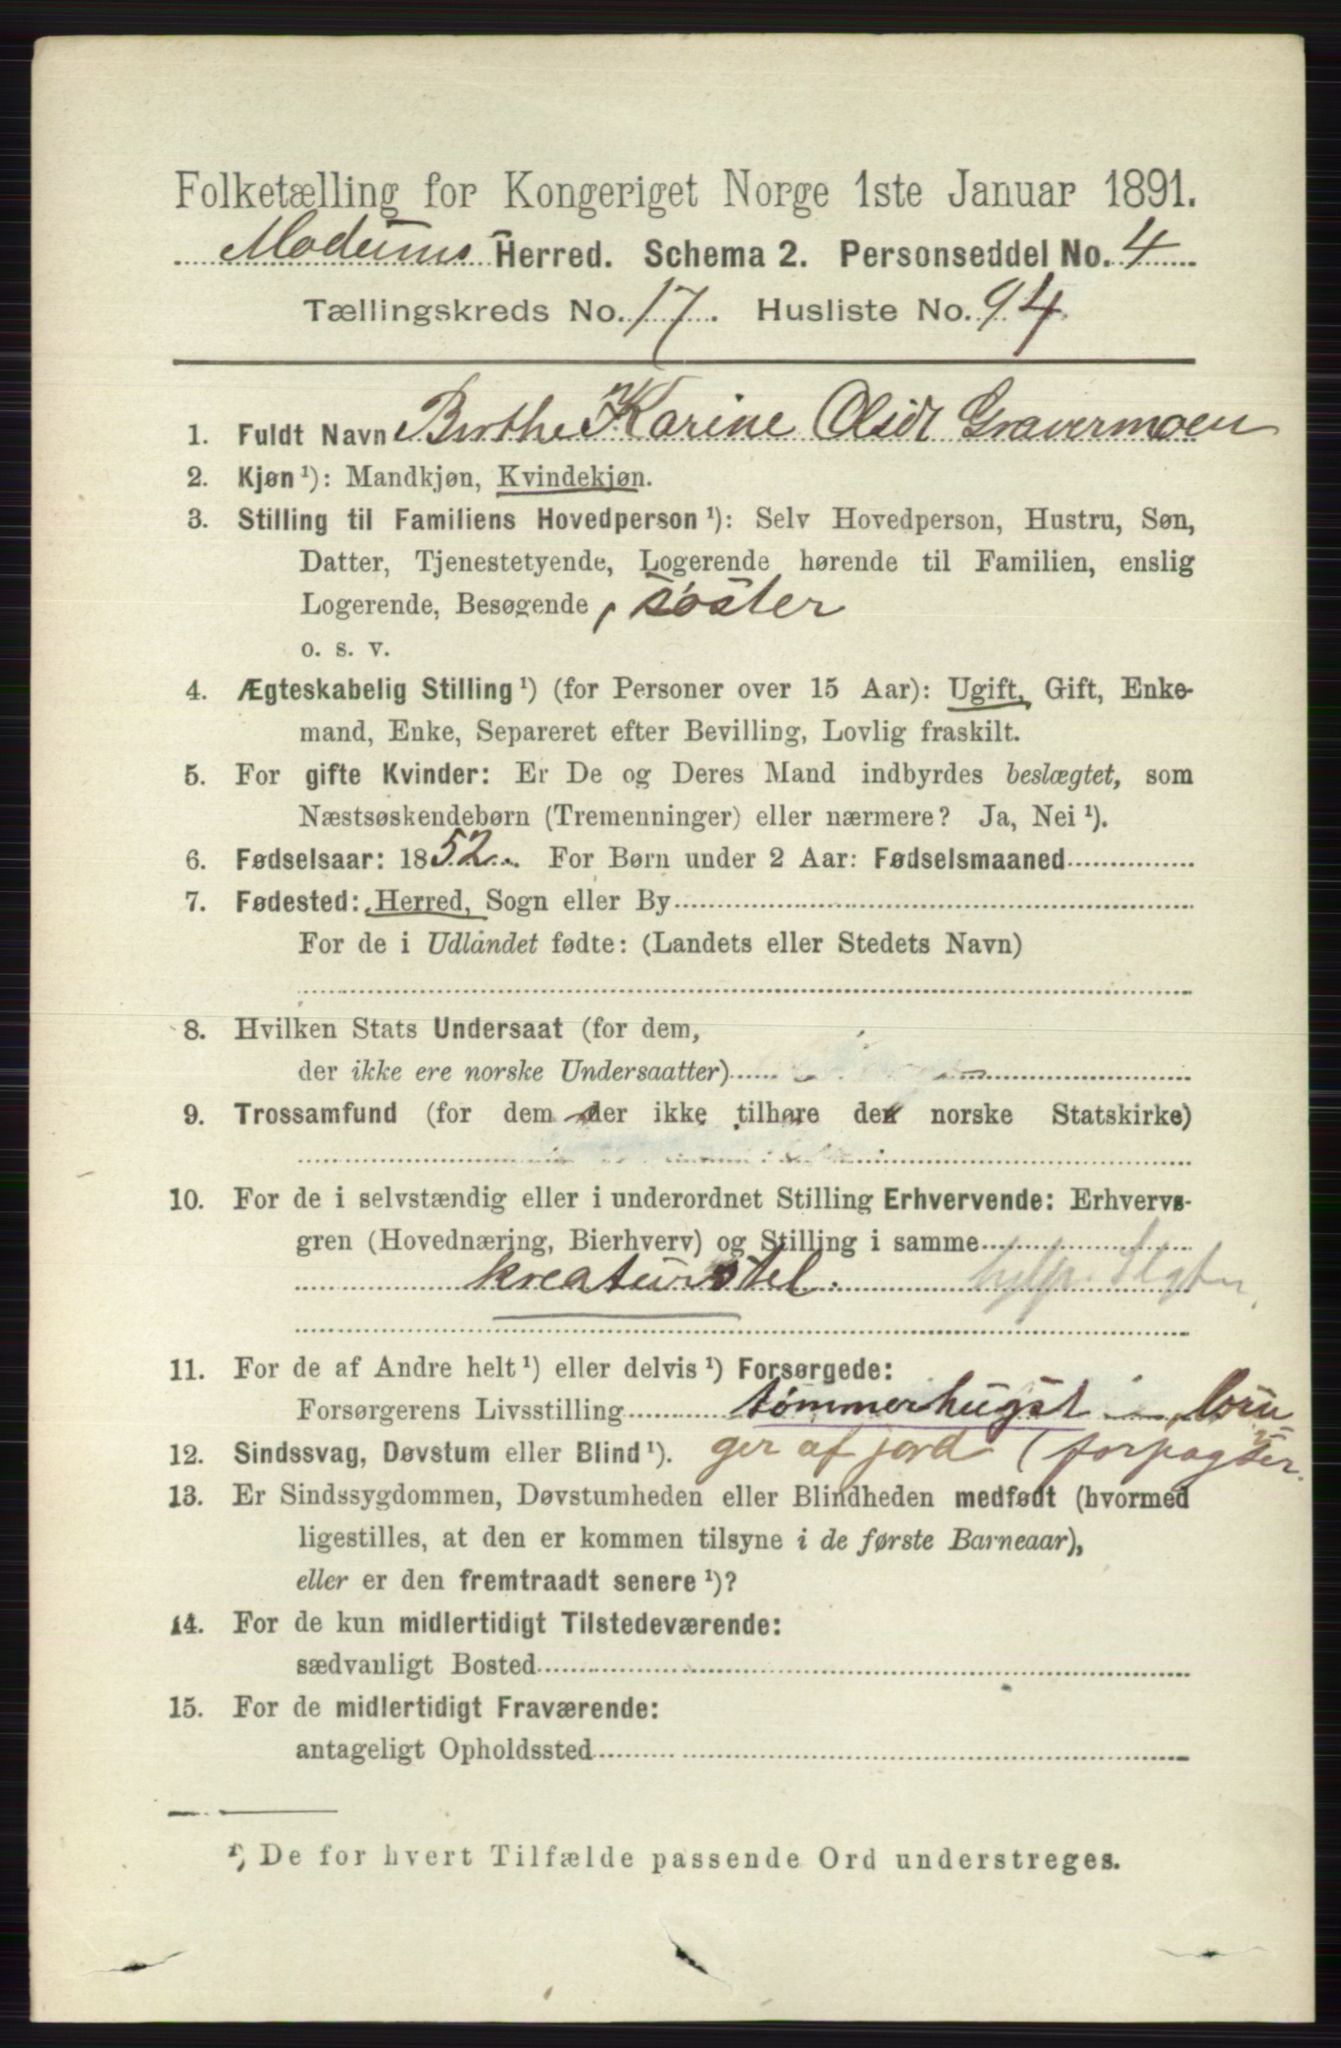 Folketælling for Kongeriget Norge 1ste Januar 1891.
Modums Herred. Schema 2. Personseddel No. 4
Tællingskreds No. 17. Husliste No. 94
1. Fuldt Navn Berthe Karine Olsdt Gravermoen
2. Kjøn ¹): Mandkjøn, Kvindekjøn.
3. Stilling til Familiens Hovedperson ¹): Selv Hovedperson, Hustru, Søn,
Datter, Tjenestetyende, Logerende hørende til Familien, enslig
Logerende, Besøgende, søster
o. s. v.
4. Ægteskabelig Stilling ¹) (for Personer over 15 Aar): Ugift, Gift, Enke-
mand, Enke, Separeret efter Bevilling, Lovlig fraskilt.
5. For gifte Kvinder: Er De og Deres Mand indbyrdes beslægtet, som
Næstsøskendebørn (Tremenninger) eller nærmere? Ja, Nei ¹).
6. Fødselsaar: 1852. For Børn under 2 Aar: Fødselsmaaned
7. Fødested: Herred, Sogn eller By
For de i Udlandet fødte: (Landets eller Stedets Navn)
8. Hvilken Stats Undersaat (for dem,
der ikke ere norske Undersaatter)
9. Trossamfund (for dem der ikke tilhøre den norske Statskirke)
10. For de i selvstændig eller i underordnet Stilling Erhvervende: Erhvervs-
gren (Hovednæring, Bierhverv) og Stilling i samme
kreaturstel. hjlp.
11. For de af Andre helt ¹) eller delvis ¹) Forsørgede:
Forsørgerens Livsstilling tømmerhugst bru
12. Sindssvag, Døvstum eller Blind ¹). ger af jord (forpagter.
13. Er Sindssygdommen, Døvstumheden eller Blindheden medfødt (hvormed
ligestilles, at den er kommen tilsyne i de første Barneaar),
eller er den fremtraadt senere ¹)?
14. For de kun midlertidigt Tilstedeværende:
sædvanligt Bosted
15. For de midlertidigt Fraværende:
antageligt Opholdssted
¹) De for hvert Tilfælde passende Ord understreges.